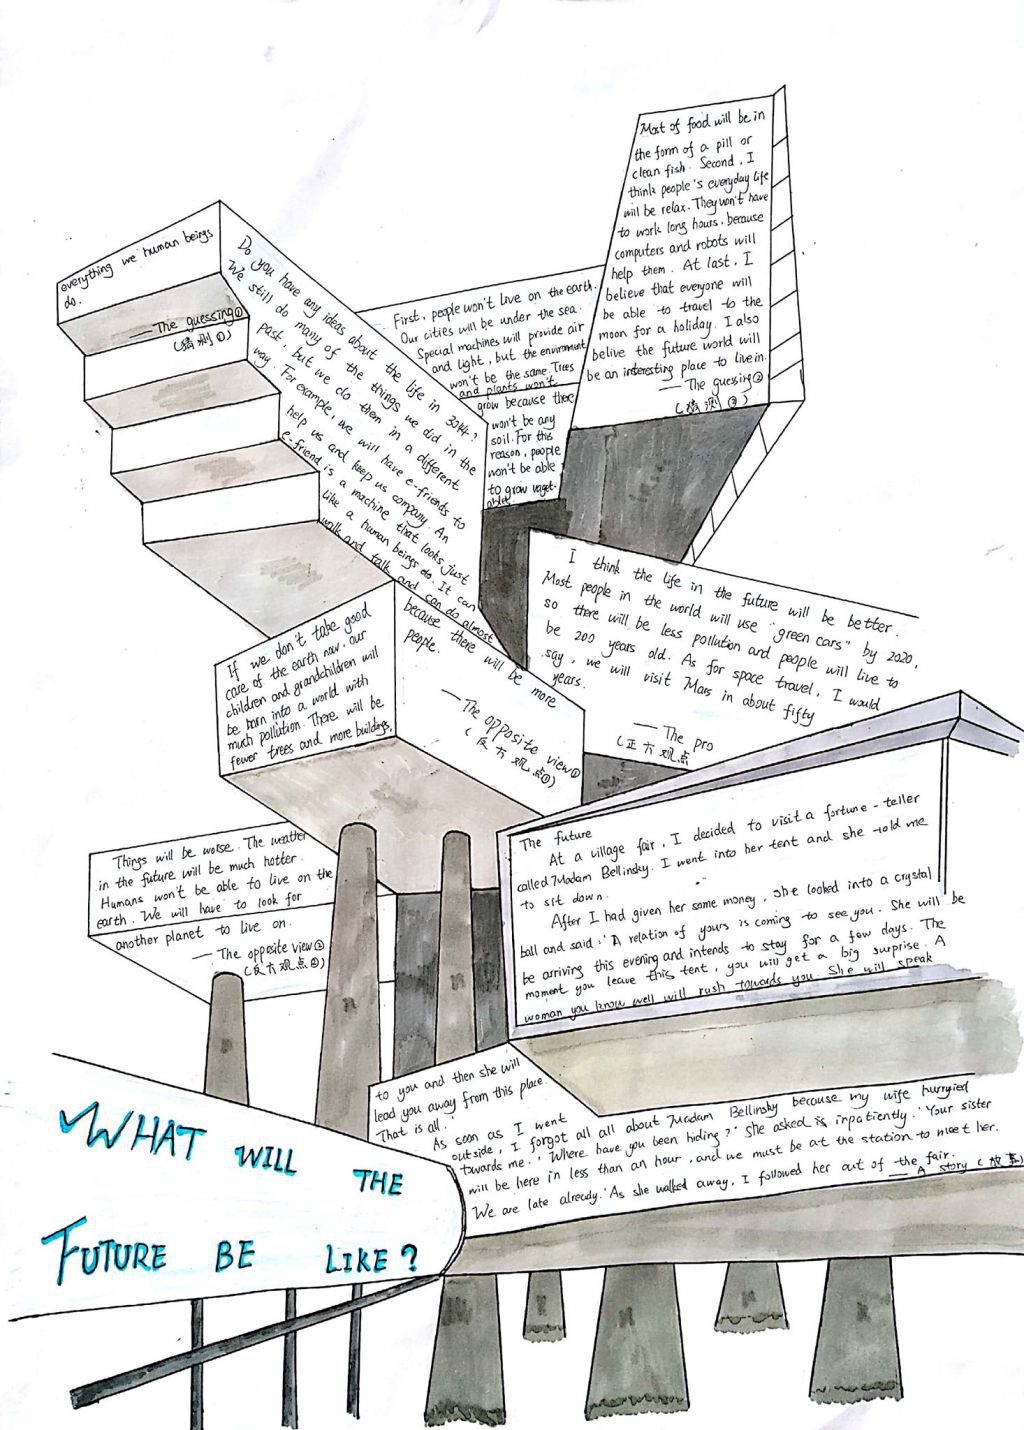 WHAT WILL THE
FUTURE BE LIKE?
Do you have any ideas about the life in 3044?
We still do many of the things we did in the
past, but we do them in a different
way. For example, we will have e-friends to
help us and keep us company. An
e-friend is a machine that looks just
like a human beings do. It can
walk and talk and can do almost
everything we human beings
do.
— The guessing①
(猜测①)
First, people won't live on the earth.
Our cities will be under the sea.
Special machines will provide air
and light, but the environment
won't be the same. Trees
and plants won't
grow because there
won't be any
soil. For this
reason, people
won't be able
to grow veget-
ables
Most of food will be in
the form of a pill or
clean fish. Second, I
think people's everyday life
will be relax. They won't have
to work long hours, because
computers and robots will
help them. At last, I
believe that everyone will
be able to travel to the
moon for a holiday. I also
belive the future world will
be an interesting place to live in.
— The guessing②
(猜测②)
I think the life in the future will be better.
Most people in the world will use "green cars" by 2020,
so there will be less pollution and people will live to
be 200 years old. As for space travel, I would
say, we will visit Mars in about fifty
years.
— The pro
(正方观点
If we don't take good
care of the earth now, our
children and grandchildren will
be born into a world with
much pollution. There will be
fewer trees and more buildings,
because there will be more
people.
— The opposite view①
(反方观点①)
Things will be worse. The weather
in the future will be much hotter.
Humans won't be able to live on the
earth. We will have to look for
another planet to live on.
— The opposite view②
(反方观点②)
The future
At a village fair, I decided to visit a fortune-teller
called Madam Bellinsky. I went into her tent and she told me
to sit down.
After I had given her some money, she looked into a crystal
ball and said: 'A relation of yours is coming to see you. She will be
be arriving this evening and intends to stay for a few days. The
moment you leave this tent, you will get a big surprise. A
woman you know well will rush towards you. She will speak
to you and then she will
lead you away from this place.
That is all.'
As soon as I went
outside, I forgot all all about Madam Bellinsky because my wife hurryied
towards me. 'Where have you been hiding?' she asked is inpatiently. 'Your sister
will be here in less than an hour, and we must be at the station to meet her.
We are late already.' As she walked away, I followed her out of the fair.
— A story (故事)